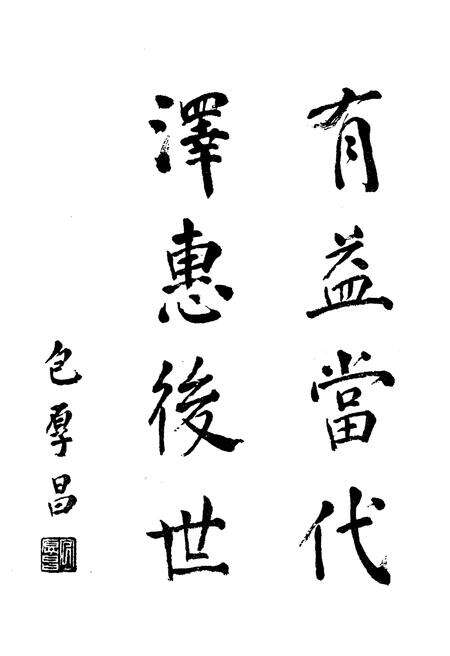 有益當代
澤惠後世
包厚昌